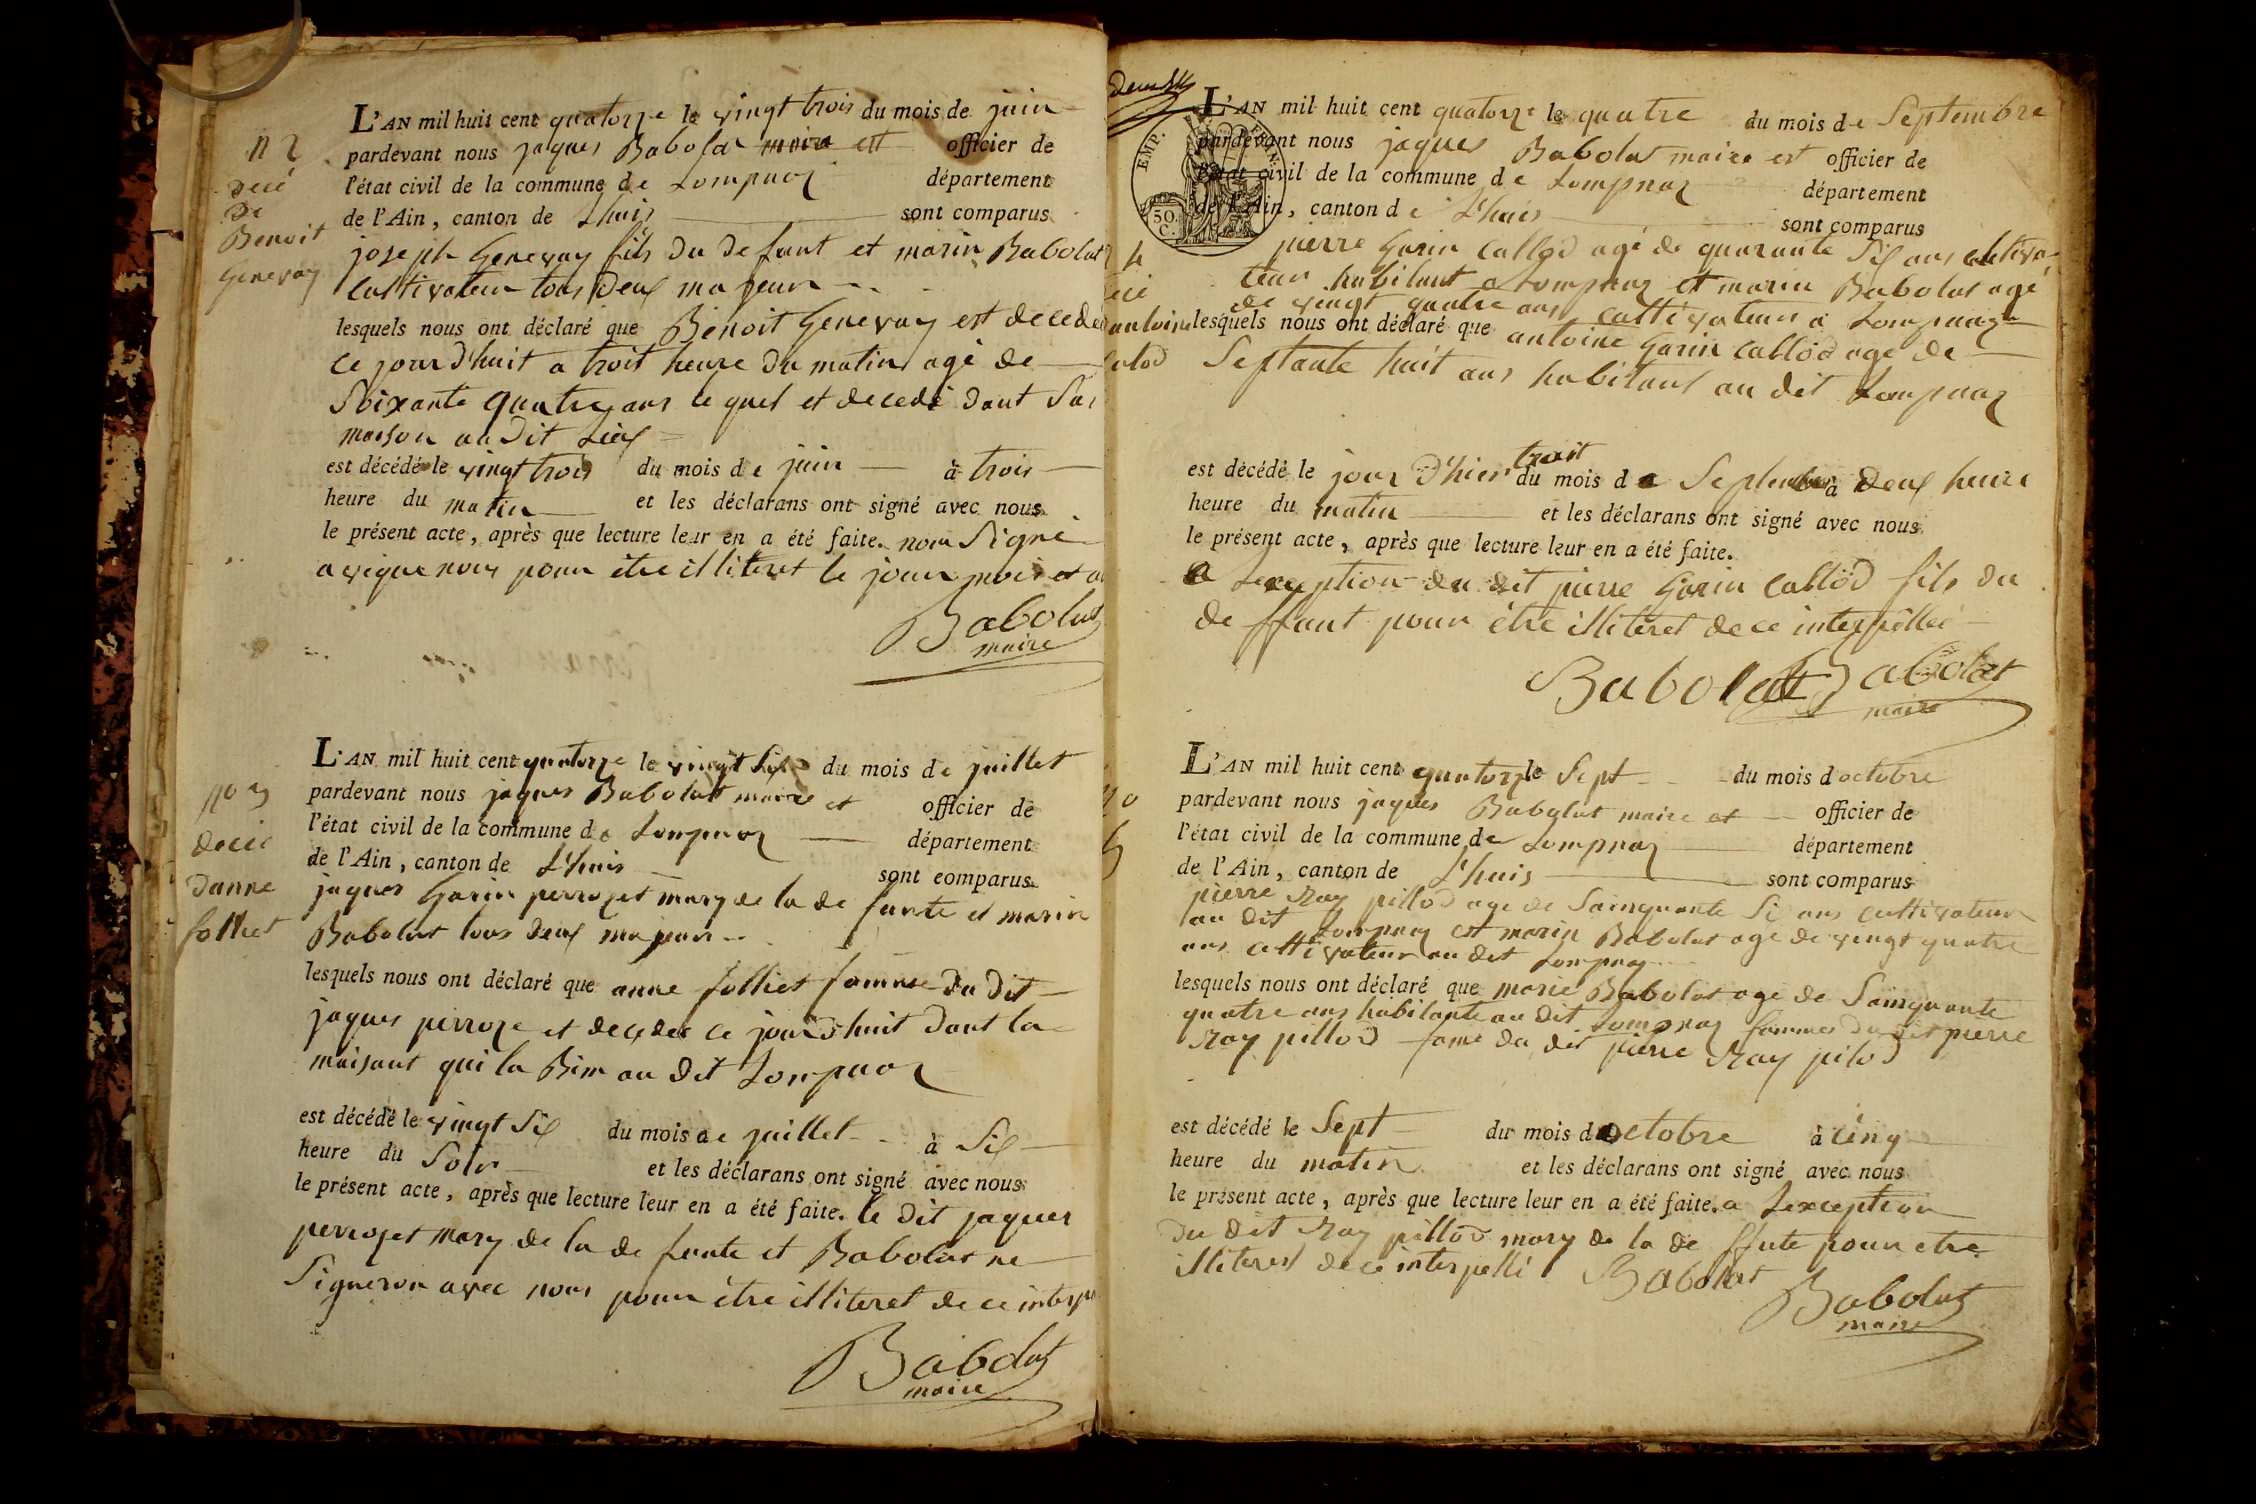 n 2
décé
de
Benoit
Genevay
L'AN mil huit cent quatorze le vingt trois du mois de juin
pardevant nous jaques Babolat maire est officier de
l'état civil de la commune de Lompnaz département
de l'Ain, canton de Lhuis sont comparus
joseph Genevay fils du defunt et marin Babolat
cultivateur tous deux majeur
lesquels nous ont déclaré que Benoit Genevay est decede
ce jourd'huit a troit heure du matin agé de
Soixante quatre ans le quel et decedé dant Sa
maison au dit Lieux
est décédé le vingt trois du mois de juin à trois
heure du matin et les déclarans ont signé avec nous
le présent acte, après que lecture leur en a été faite. non Signé
avique nous pour être illiteret le jour mois et a
Babolat
maire
no 3
décé
danne
folliet
L'AN mil huit cent quatorze le vingt Six du mois de juillet
pardevant nous jaques Babolat maire et officier de
l'état civil de la commune de Lompnaz département
de l'Ain, canton de Lhuis sont comparus
jaques Garin perrozet mary de la defunte et marin
Babolat tous deux majeur
lesquels nous ont déclaré que anne folliet famme du dit
jaques perroze et decedée ce jourd'huit dant la
maisont qui la Bim au dit Lompnaz
est décédé le vingt Six du mois de juillet à Six
heure du Soir et les déclarans ont signé avec nous
le présent acte, après que lecture leur en a été faite. le dit jaques
perrozet mary de la defunte et Babolat ne
Signeron avec nous pour être illiteret de ce interp
Babolat
maire
EMP.
50.
C.
4
antoine
L'AN mil huit cent quatorze le quatre du mois de Septembre
pardevant nous jaques Babolat maire est officier de
l'état civil de la commune de Lompnaz département
de l'Ain, canton de Lhuis sont comparus
pierre Garin Callod agé de quarante Six ans cultiva
teur habitant a Lompnaz et marin Babolat agé
de vingt quatre ans cultivateur à Lompnaz
lesquels nous ont déclaré que antoine Garin Callod age de
Septante huit ans habitant au dit Lompnaz
est décédé le jour d'hier troit du mois de Septembre à deux heure
heure du matin et les déclarans ont signé avec nous
le présent acte, après que lecture leur en a été faite.
a Lexception du dit pierre Garin Callod fils du
deffunt pour être illiteret de ce interpellé
Babolat Babolat
maire
no
5
L'AN mil huit cent quatorze le Sept du mois doctobre
pardevant nous jaques Babolat maire et officier de
l'état civil de la commune de Lompnaz département
de l'Ain, canton de Lhuis sont comparus
pierre Ray pillod age de Sainquante Si ans cultivateur
au dit Lompnaz est marin Babolat age de vingt quatre
ans cultivateur au dit Lompnaz
lesquels nous ont déclaré que marie Babolat age de Sainquante
quatre ans habitante au dit Lompnaz famme du dit pierre
Ray pillod fame du dit pierre Ray pilod
est décédé le Sept du mois doctobre à cinq
heure du matin et les déclarans ont signé avec nous
le présent acte, après que lecture leur en a été faite. a Lexception
du dit Ray pillod mary de la deffute pour etre
illiteret de ce interpellé Babolat
Babolat
maire